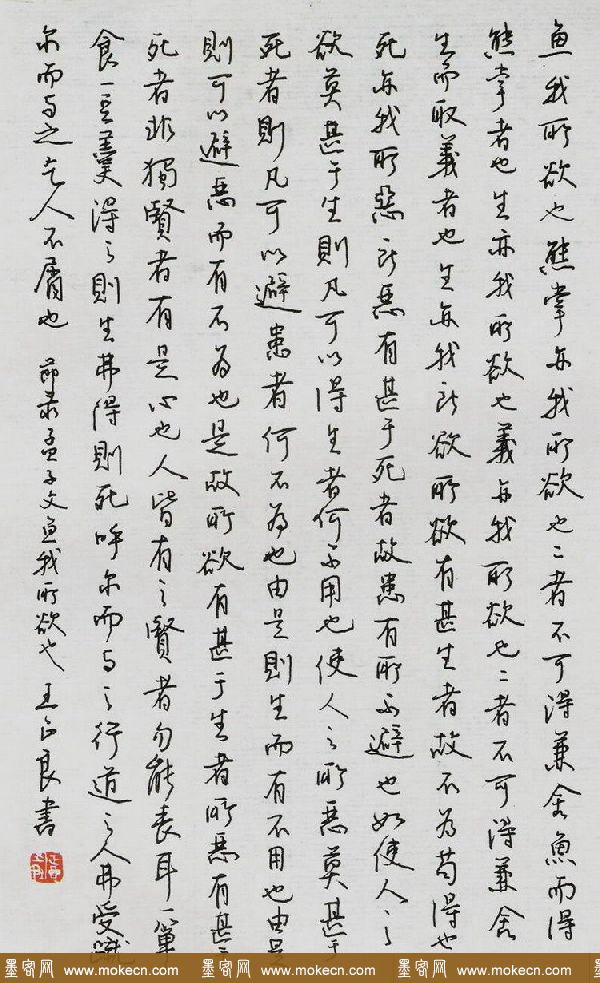 魚我所欲也熊掌亦我所欲也二者不可得兼舍魚而得
熊掌者也生亦我所欲也義亦我所欲也二者不可得兼舍
生而取義者也生亦我所欲所欲有甚生者故不為苟得也
死亦我所惡所惡有甚于死者故患有所不避也如使人之
欲莫甚于生則凡可以得生者何不用也使人之所惡莫甚于
死者則凡可以避患者何不為也由是則生而有不用也由是
則可以避惡而有不為也是故所欲有甚于生者所惡有甚于
死者非獨賢者有是心也人皆有之賢者勿能丧耳一簞
食一豆羹得之則生弗得則死呼尔而与之行道之人弗受蹴
尔而与之乞人不屑也 節录孟子文魚我所欲也 王正良書
墨客网 www.mokecn.com 墨客网 www.mokecn.com 墨客网 www.mokecn.com